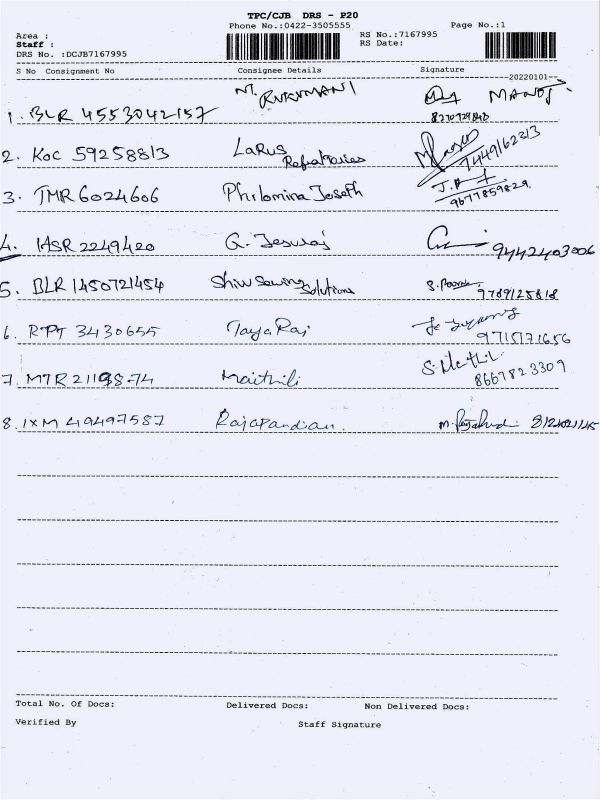 TPC/CJB DRS - P20
Phone No.:0422-3505555
Page No.:1
Area :
RS No.:7167995
Staff :
RS Date:
DRS No. :DCJB7167995
S No Consignment No Consignee Details Signature
20220101
1. BLR 4553042157 M. RUKUMANI MANOJ.
2. KOC 59258813 Larus Refratories 9449162313
3. TMR 6024606 Philomina Joseph 9677859829
4. IASR 2249420 G. Jesuraj 9442403006
5. BLR 1450721454 Shiw Sewing Solutions 9789125818
6. RPT 3430655 JayaRaj
7. MTR 2119874 Maithili S. Maithili 8667823309
8. IXM 49497587 RajaPandian.
Total No. Of Docs: Delivered Docs: Non Delivered Docs:
Verified By Staff Signature